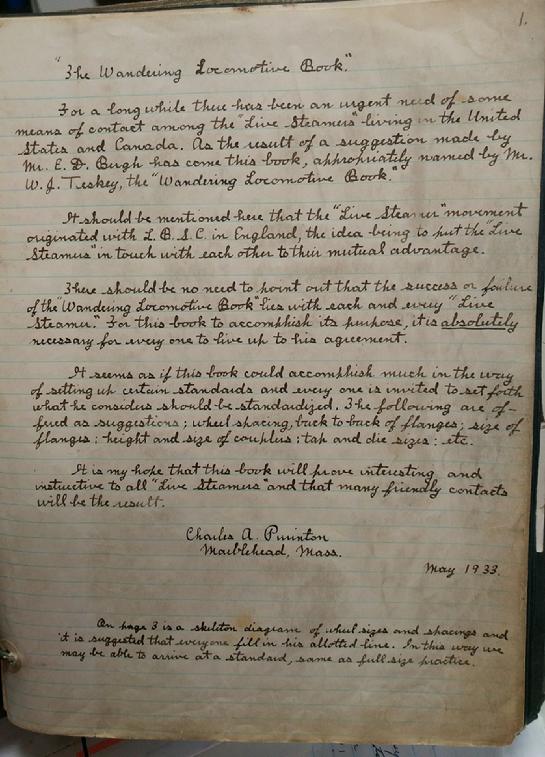 1.
"The Wandering Locomotive Book."
For a long while there has been an urgent need of some
means of contact among the "Live Steamers" living in the United
States and Canada. As the result of a suggestion made by
Mr. E. D. Bergh has come this book, appropriately named by Mr.
W. J. Teskey, the "Wandering Locomotive Book."
It should be mentioned here that the "Live Steamer" movement
originated with L.B.S.C. in England, the idea being to put the Live
Steamers" in touch with each other to their mutual advantage.
There should be no need to point out that the success or failure
of the "Wandering Locomotive Book" lies with each and every "Live
Steamer." For this book to accomplish its purpose, it is absolutely
necessary for every one to live up to his agreement.
It seems as if this book could accomplish much in the way
of setting up certain standards and every one is invited to set forth
what he considers should be standardized. The following are of-
fered as suggestions; wheel spacing, back to back of flanges; size of
flanges; height and size of couplers; tap and die sizes; etc.
It is my hope that this book will prove interesting and
instructive to all "Live Steamers" and that many friendly contacts
will be the result.
Charles A. Purinton
Marblehead, Mass.
May 1933.
On page 3 is a skeleton diagram of wheel sizes and spacings and
it is suggested that everyone fill in his allotted line. In this way we
may be able to arrive at a standard, same as full size practice.